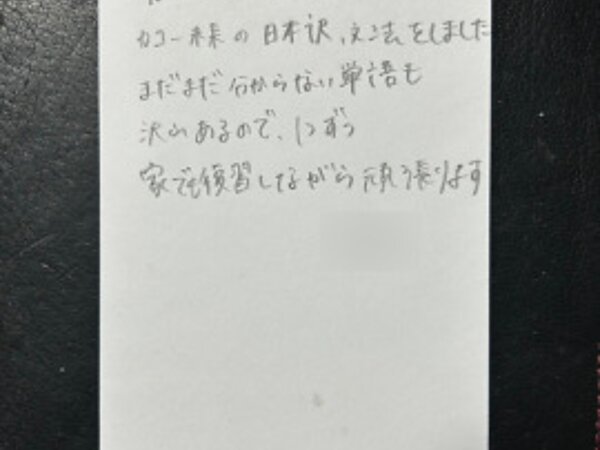 の日本訳、文法をしました
まだまだ分からない単語も
沢山あるので、1つずつ
家でも復習しながら頑張ります